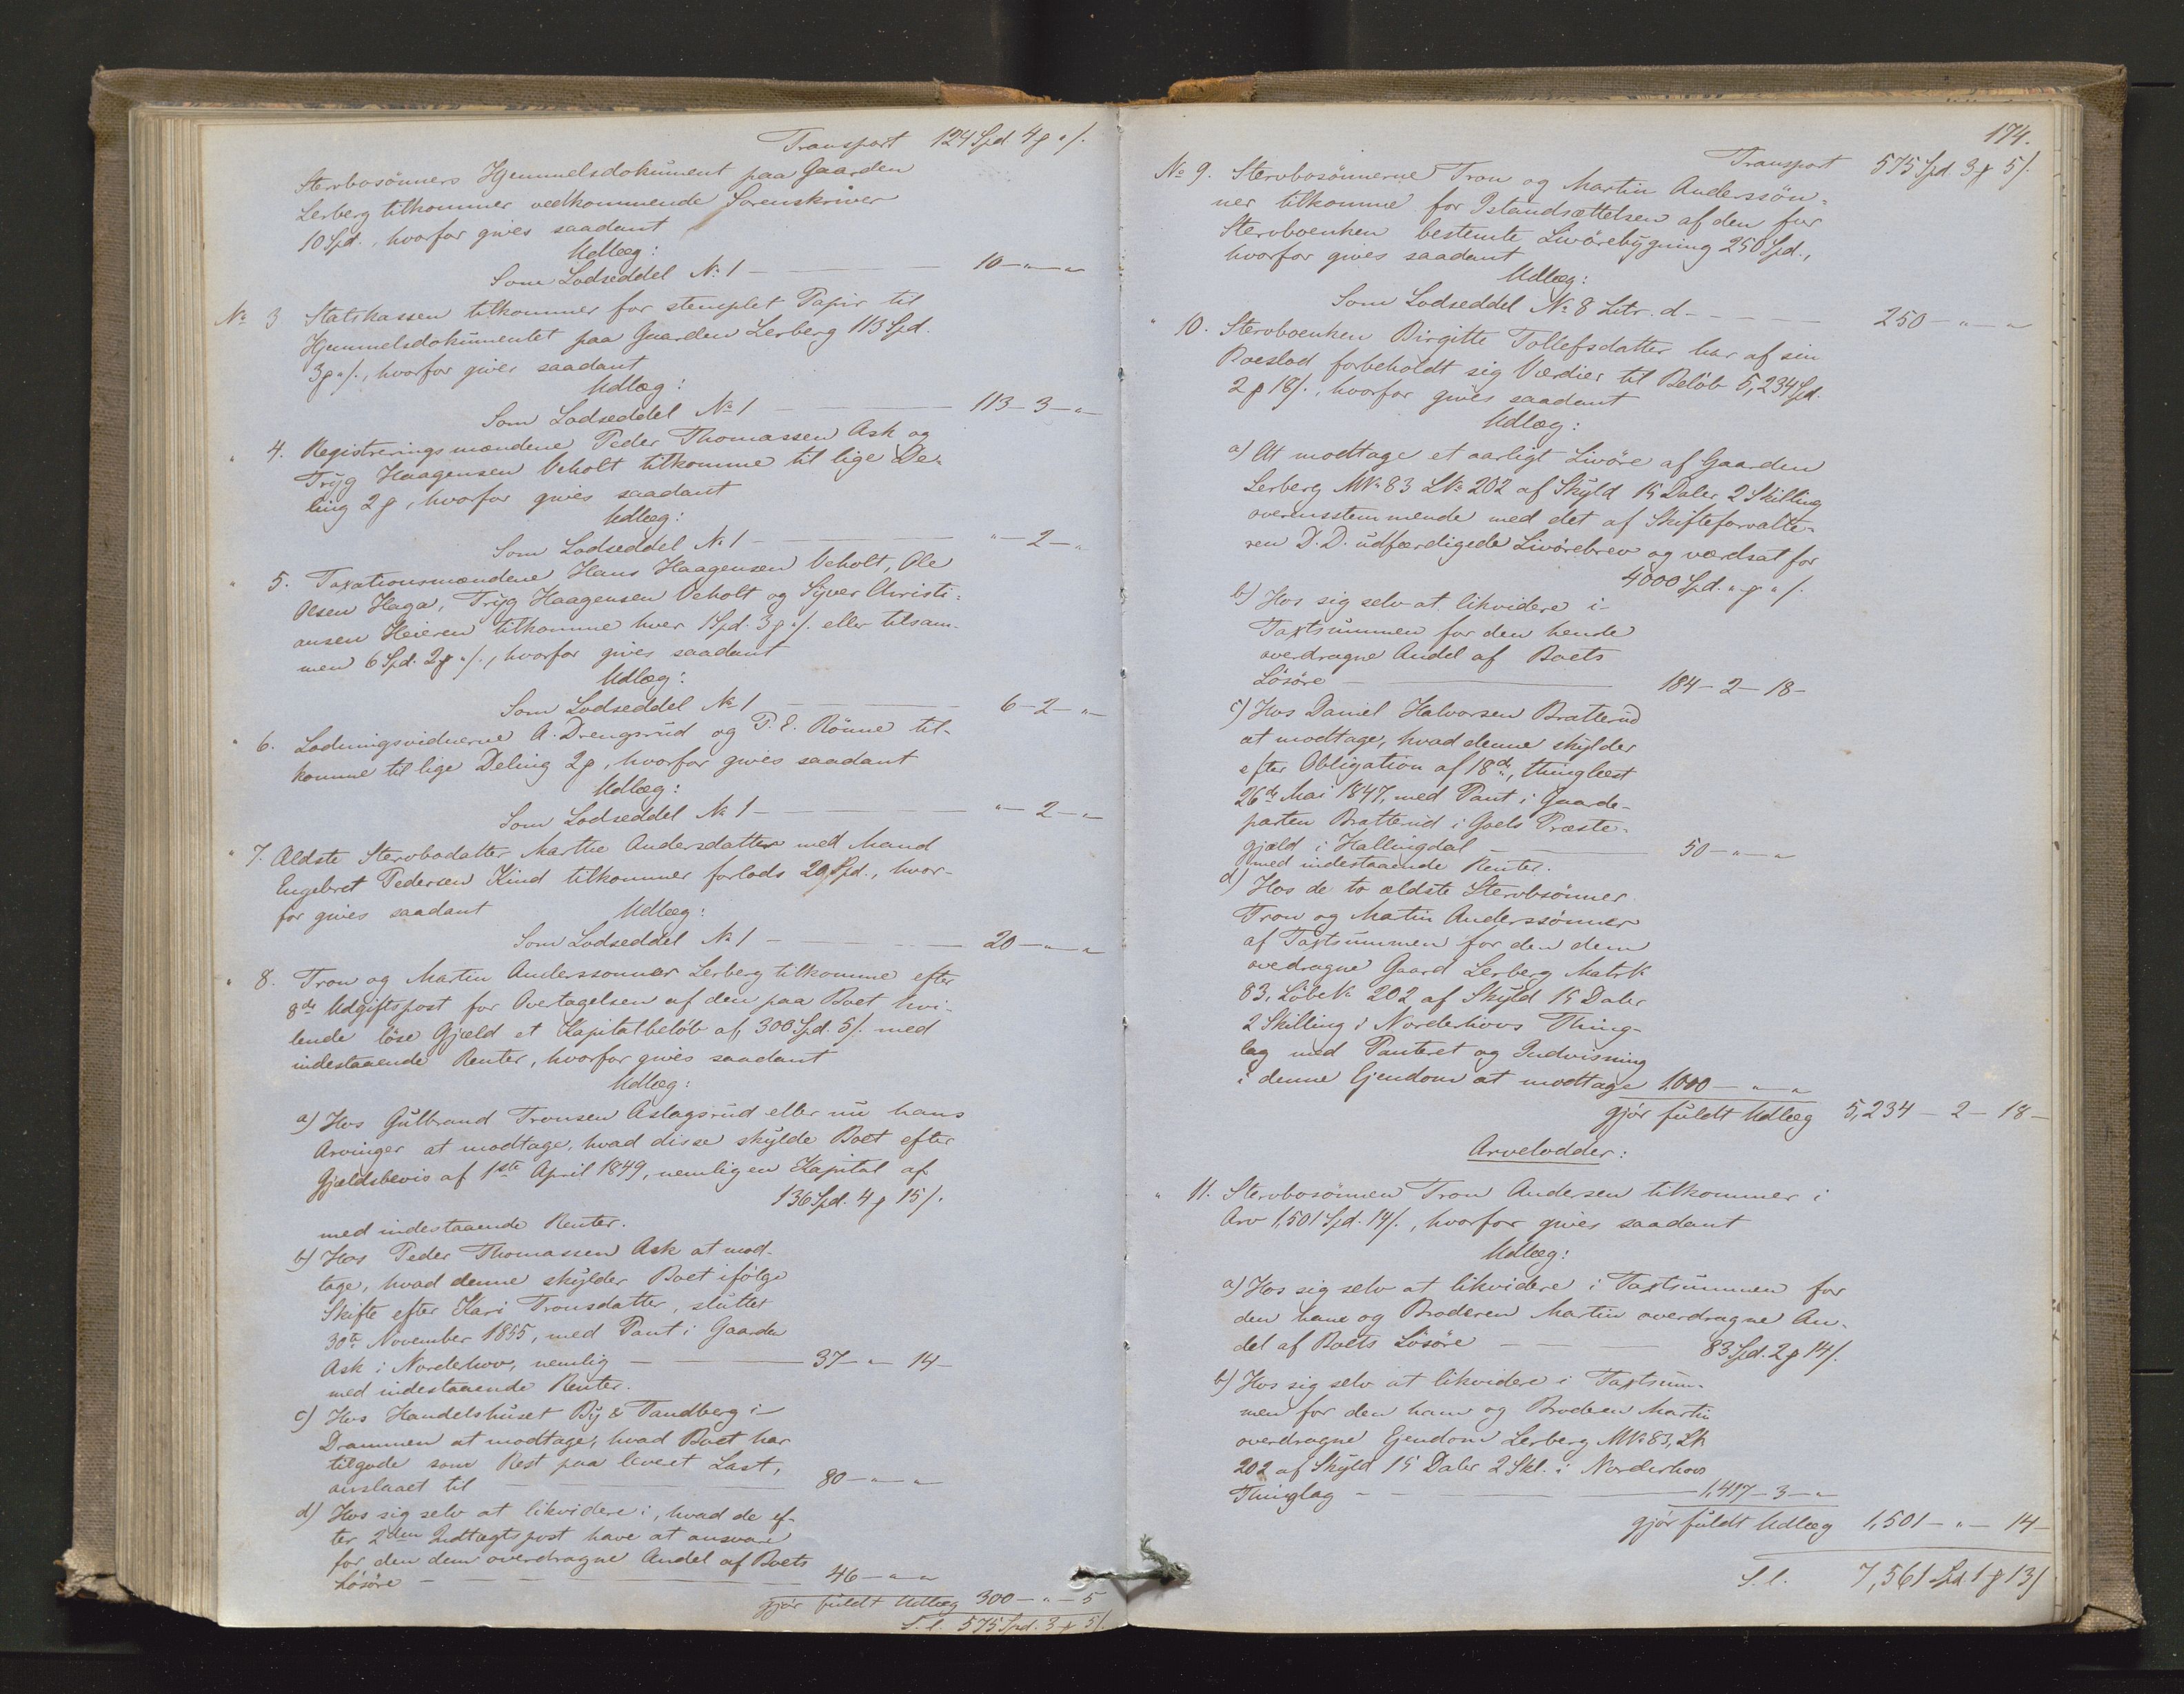 Transport 124 Spd. 4 ƥ " /.
Stervbosönners Hjemmelsdokument paa Gaarden
Lerberg tilkommer vedkommende Sorenskriver
10 Spd., hvorfor gives saadant
Udlæg:
Som Lodseddel № 1 — 10 — " — "
№ 3 Statskassen tilkommer for stemplet Papir til
Hjemmelsdokumentet paa Gaarden Lerberg 113 Spd.
3 ƥ " /., hvorfor gives saadant
Udlæg:
Som Lodseddel № 1 — 113 — 3 — "
" 4. Registreringsmændene Peder Thomassen Ask og
Tryg Haagensen Veholt tilkomme til lige De-
ling 2 ƥ, hvorfor gives saadant
Udlæg:
Som Lodseddel № 1 — " — 2 — "
" 5. Taxationsmændene Hans Haagensen Veholt, Ole
Olsen Haga, Tryg Haagensen Veholt og Syver Christi-
ansen Heieren tilkomme hver 1 Spd. 3 ƥ " /. eller tilsam-
men 6 Spd. 2 ƥ " /., hvorfor gives saadant
Udlæg:
Som Lodseddel № 1 — 6 — 2 — "
" 6. Lodningsvidnerne A. Drengsrud og P. E. Rönne til-
komme til lige Deling 2 ƥ, hvorfor gives saadant
Udlæg:
Som Lodseddel № 1 — " — 2 — "
" 7. Ældste Stervbodatter Marthe Andersdatter med Mand
Engebret Pedersen Kind tilkommer forlods 20 Spd., hvor-
for gives saadant Udlæg:
Som Lodseddel № 1 — 20 — " — "
" 8. Tron og Martin Anderssønner Lerberg tilkomme efter
8de Udgiftspost for Overtagelsen af den paa Boet hvi-
lende löse Gjæld et Kapitalbelöb af 300 Spd. 5 /. med
indestaaende Renter, hvorfor gives saadant
Udlæg:
a) Hos Gulbrand Tronsen Aslagsrud eller nu hans
Arvinger at modtage, hvad disse skylde Boet efter
Gjældsbevis af 1ste April 1849, nemlig en Kapital af
136 Spd. 4 ƥ 15 /.
med indestaaende Renter.
b) Hos Peder Thomassen Ask at mod-
tage, hvad denne skylder Boet ifölge
Skifte efter Kari Tronsdatter, sluttet
30te November 1855, med Pant i Gaarden
Ask i Norderhov, nemlig — 37 — " — 14 —
med indestaaende Renter.
c) Hos Handelshuset By & Tandberg i
Drammen at modtage, hvad Boet har
tilgode som Rest paa leveret Last,
anslaaet til — 80 — " — "
d) Hos sig selv at likvidere i, hvad de ef-
ter 2den Indtægtspost have at ansvare
for den dem overdragne Andel af Boets
Lösöre — 46 — " — "
gjör fuldt Udlæg 300 — " — 5
S. l. 575 Spd. 3 ƥ 5 /.
174.
Transport 575 Spd. 3 ƥ 5 /.
№ 9. Stervbosönnerne Tron og Martin Anderssön-
ner tilkomme for Istandsættelsen af den for
Stervboenken bestemte Livörebygning 250 Spd.,
hvorfor gives saadant
Udlæg:
Som Lodseddel № 8 Litr. d — 250 — " — "
" 10. Stervboenken Birgitte Tollefsdatter har af sin
Boeslod forbeholdt sig Værdier til Belöb 5,234 Spd.
2 ƥ 18 /., hvorfor gives saadant
Udlæg:
a) At modtage et aarligt Livöre af Gaarden
Lerberg M№ 83 L№ 202 af Skyld 15 Daler 2 Skilling
overensstemmende med det af Skifteforvalte-
ren D. D. udfærdigede Livörebrev og værdsat for
4000 Spd. " ƥ " /.
b) Hos sig selv at likvidere i
Taxtsummen for den hende
overdragne Andel af Boets
Lösöre — 184 — 2 — 18 —
c) Hos Daniel Halvorsen Bratterud
at modtage, hvad denne skylder
efter Obligation af 18de, thinglæst
26de Mai 1847, med Pant i Gaarde-
parten Bratterud i Goels Præste-
gjæld i Hallingdal — 50 — " — "
med indestaaende Renter.
d) Hos de to ældste Stervbsönner
Tron og Matin Anderssönner
af Taxtsummen for den dem
overdragne Gaard Lerberg Matr№
83, Löbe№ 202 af Skyld 15 Daler
2 Skilling i Norderhovs Thing-
lag med Panteret og Indvisning
i denne Ejendom at modtage 1,000 — " — "
gjör fuldt Udlæg 5,234 — 2 — 18 —
Arvelodder:
" 11. Stervbosönnen Tron Andersen tilkommer i
Arv 1,501 Spd. 14 /., hvorfor gives saadant
Udlæg:
a) Hos sig selv at likvidere i Taxtsummen for
den ham og Broderen Martin overdragne An-
del af Boets Lösöre — 83 Spd. 2 ƥ 14 /.
b) Hos sig selv at likvidere i Taxtsum-
men for den ham og Broderen Martin
overdragne Ejendom Lerberg M№ 83, L№
202 af Skyld 15 Daler 2 Skl. i Norderhovs
Thinglag — 1,417 — 3 — "
gjör fuldt Udlæg 1,501 — " — 14 —
S. l. 7,561 Spd. 1 ƥ 13 /.